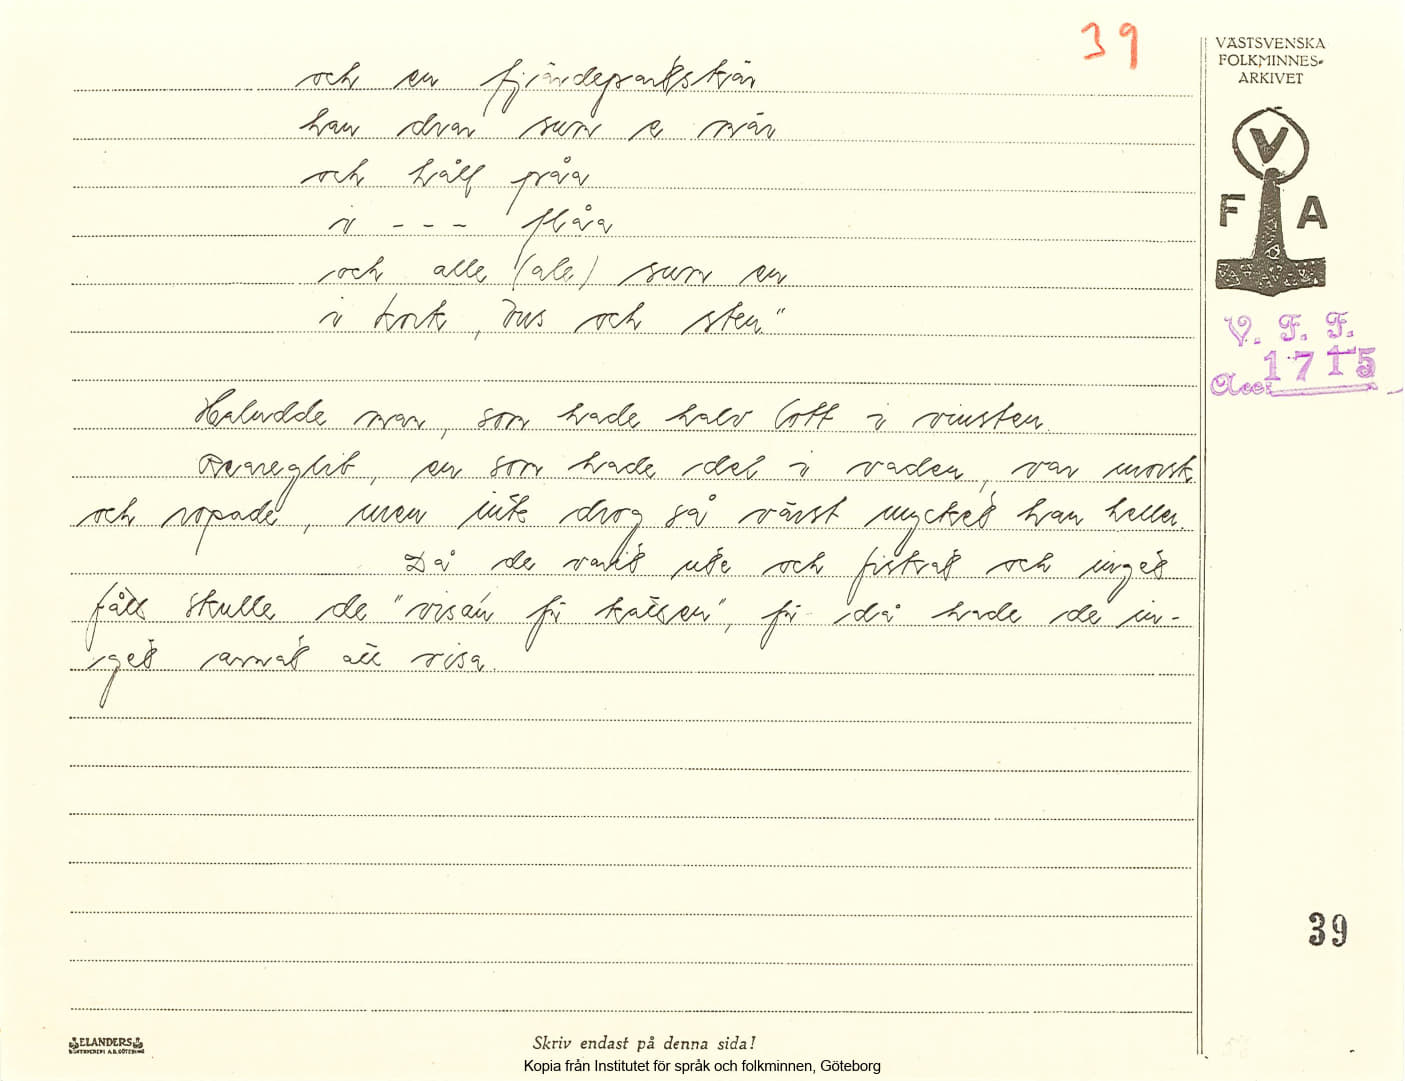 39
VÄSTSVENSKA
FOLKMINNES-
ARKIVET
och en fjärdepartskär
han drar sum e mär
och hålf påa
i - - - flåa
och alle (ale) sum en
i kork, dus och sten."
Haludde man, som hade halv lott i vinsten.
Revareglib, en som hade del i vaden, var morsk
och ropade, men inte drog så värst mycket han heller.
Då de varit ute och fiskat och inget
fått skulle de "visa'n för katten", för då hade de in-
get annat att visa.
V F A
V. F. F.
Acc: 1715
39
ELANDERS
BOKTRYCKERI A.B. GÖTEBORG
Skriv endast på denna sida!
Kopia från Institutet för språk och folkminnen, Göteborg